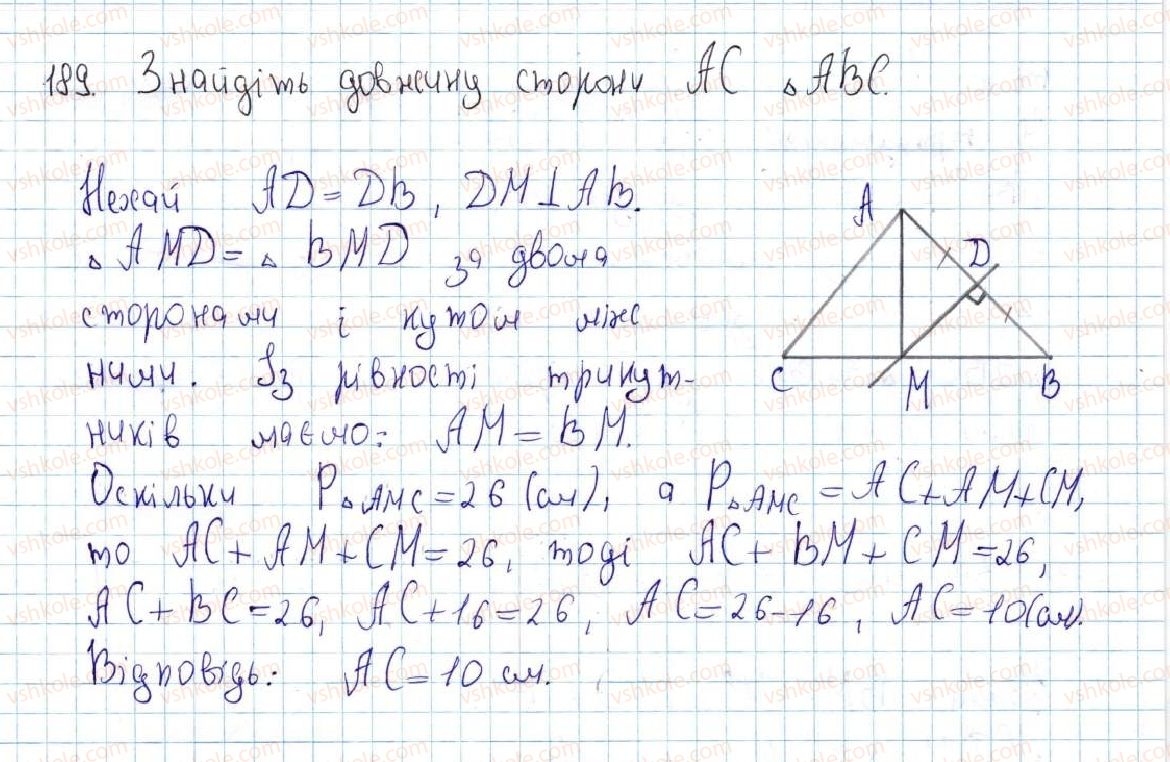 189. Знайдіть довжину сторони AC △ABC.
Нехай AD = DB, DM⊥AB.
△AMD = △BMD за двома
сторонами і кутом між
ними. Із рівності трикут-
ників маємо: AM = BM.
A
D
C
M
B
Оскільки P△AMC = 26 (см), а P△AMC = AC + AM + CM,
то AC + AM + CM = 26, тоді AC + BM + CM = 26,
AC + BC = 26, AC + 16 = 26, AC = 26 - 16, AC = 10 (см).
Відповідь: AC = 10 см.
vshkole.com